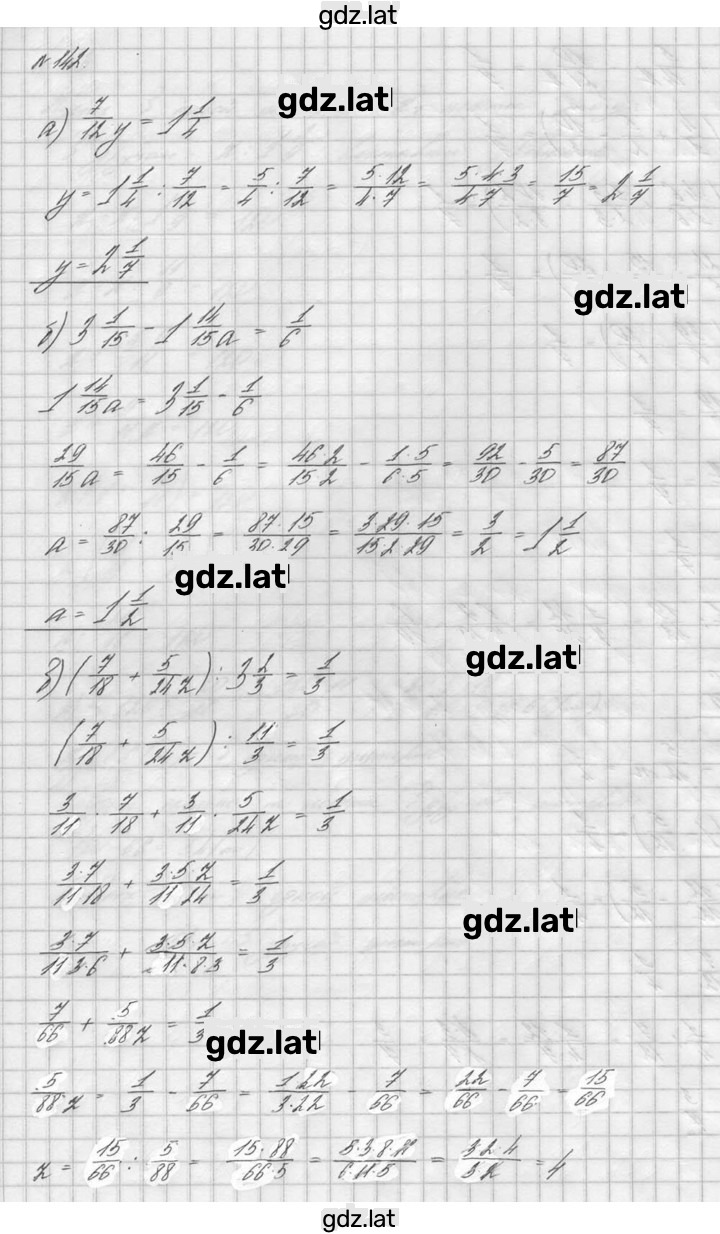 gdz.lat
№ 142.
gdz.lat
а) 7/12 y = 1 1/4
y = 1 1/4 : 7/12 = 5/4 : 7/12 = 5·12/4·7 = 5·4·3/4·7 = 15/7 = 2 1/7
y = 2 1/7
gdz.lat
б) 3 1/15 - 1 14/15 a = 1/6
1 14/15 a = 3 1/15 - 1/6
29/15 a = 46/15 - 1/6 = 46·2/15·2 - 1·5/6·5 = 92/30 - 5/30 = 87/30
a = 87/30 : 29/15 = 87·15/30·29 = 3·29·15/15·2·29 = 3/2 = 1 1/2
gdz.lat
a = 1 1/2
gdz.lat
в) (7/18 + 5/24 z) : 3 2/3 = 1/3
(7/18 + 5/24 z) : 11/3 = 1/3
3/11 · 7/18 + 3/11 · 5/24 z = 1/3
3·7/11·18 + 3·5·z/11·24 = 1/3
gdz.lat
3·7/11·3·6 + 3·5·z/11·8·3 = 1/3
7/66 + 5/88 z = 1/3
gdz.lat
5/88 z = 1/3 - 7/66 = 1·22/3·22 - 7/66 = 22/66 - 7/66 = 15/66
z = 15/66 : 5/88 = 15·88/66·5 = 5·3·8·11/6·11·5 = 3·2·4/3·2 = 4
gdz.lat